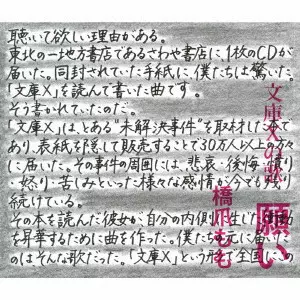 聴いて欲しい理由がある。
東北の一地方書店であるさわや書店に、1枚のCDが
届いた。同封されていた手紙に、僕たちは驚いた。
「文庫X」を読んで書いた曲です。
そう書かれていたのだ。
「文庫X」は、とある“未解決事件”を取材した本で
あり、表紙を隠して販売することで30万人以上の方々
に届いた。その事件の周囲には、悲哀・後悔・憤り
・怒り・苦しみといった様々な感情が今でも残り
続けている。
その本を読んだ彼女が、自分の内側に生じた
を昇華するために曲を作った。僕たちの元に届いた
のはそんな歌だった。「文庫X」という形で全国にこの
文庫Xの歌
願い
橋爪もも